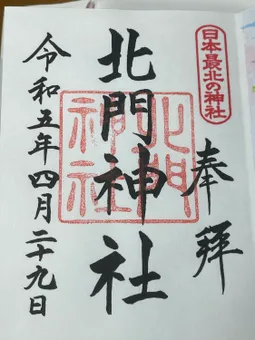 日本最北の神社
奉拝
北門神社
北門神社
令和五年四月二十九日